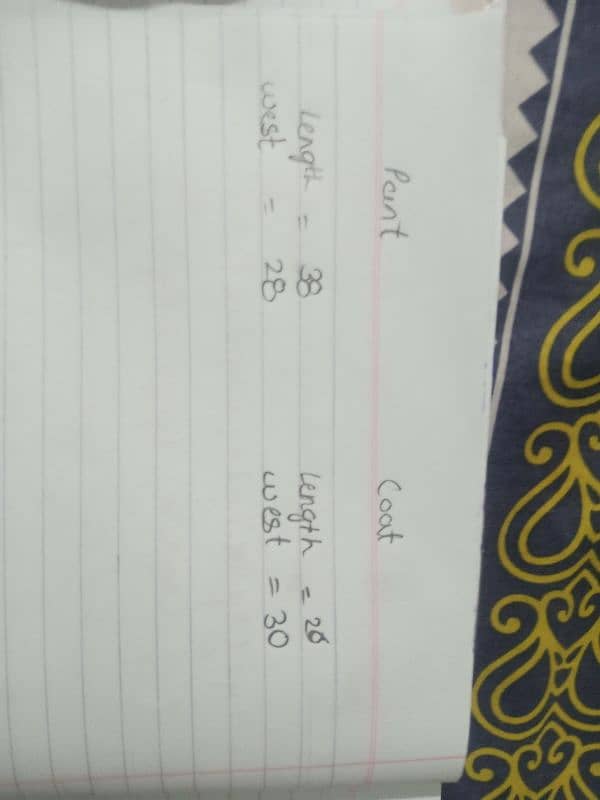 Pant Coat
Length = 38 Length = 28
west = 28 west = 30